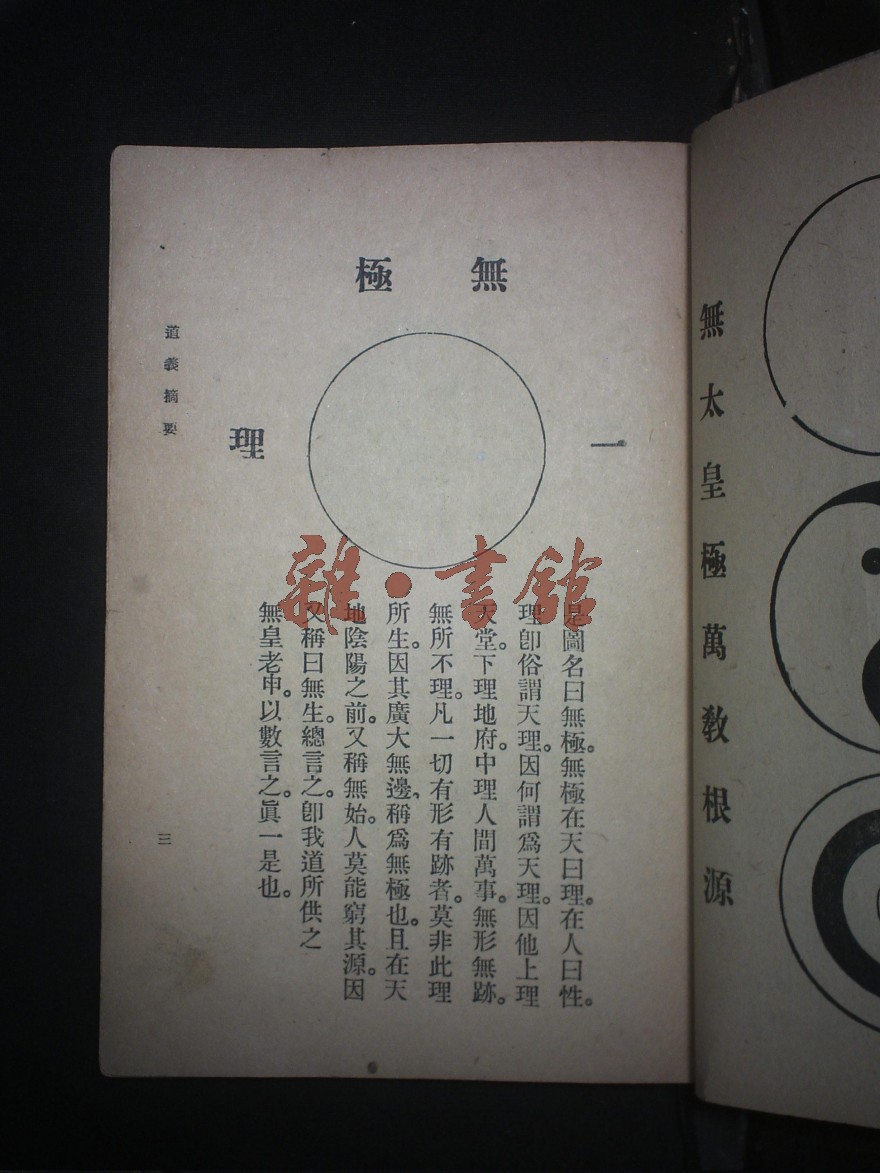 無太皇極萬教根源
無極
一理
是圖名曰無極。無極在天曰理。在人曰性。
理卽俗謂天理。因何謂爲天理。因他上理
天堂。下理地府。中理人間萬事。無形無跡。
無所不理。凡一切有形有跡者。莫非此理
所生。因其廣大無邊。稱爲無極也。且在天
地陰陽之前。又稱無始。人莫能窮其源。因
又稱曰無生。總言之。卽我道所供之
無皇老申。以數言之。眞一是也。
道義摘要
三
雜·書館